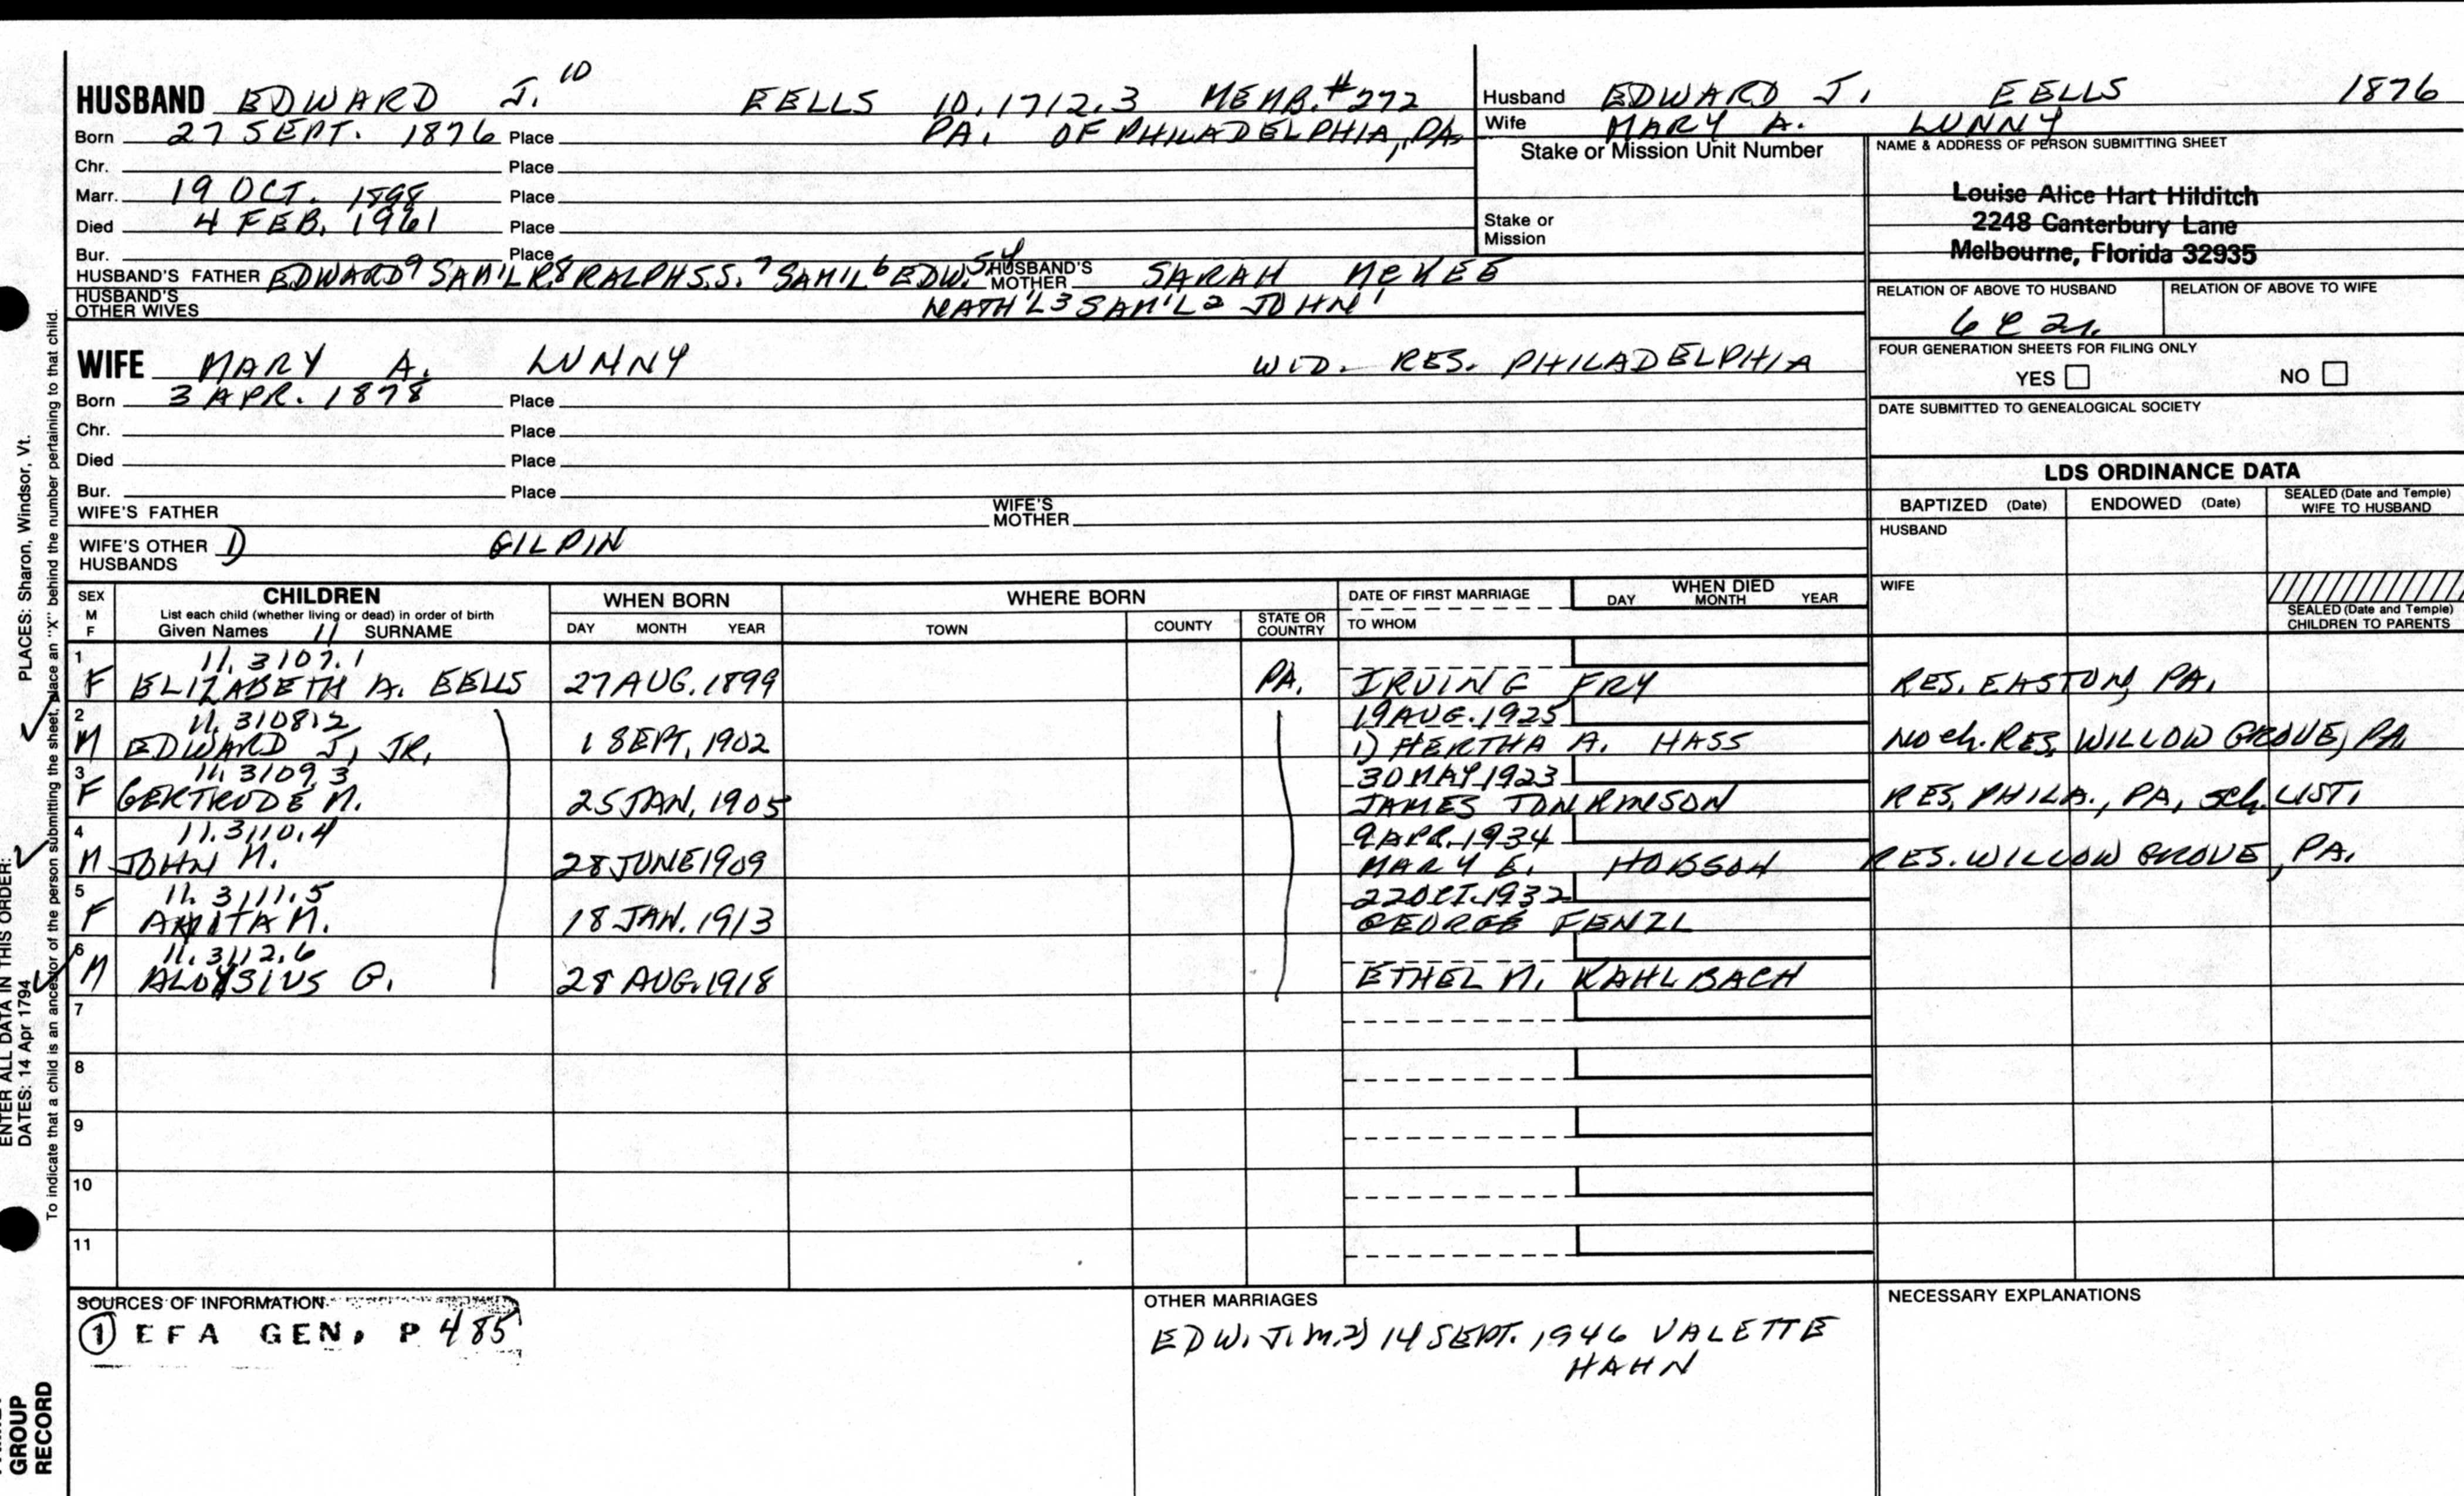 HUSBAND EDWARD J. 10 EELLS 10.1712.3 MEMB.#272
Born 27 SEPT. 1876 Place PA. OF PHILADELPHIA, PA.
Chr. Place
Marr. 19 OCT. 1898 Place
Died 4 FEB. 1961 Place
Bur. Place
HUSBAND'S FATHER EDWARD9 SAM'L R.8 RALPH S.S.7 SAM'L6 EDW.54 HUSBAND'S MOTHER SARAH McKEE
HUSBAND'S OTHER WIVES NATH'L3 SAM'L2 JOHN1
Husband EDWARD J. EELLS 1876
Wife MARY A. LUNNY
Stake or Mission Unit Number
Stake or
Mission
NAME & ADDRESS OF PERSON SUBMITTING SHEET
Louise Alice Hart Hilditch
2248 Canterbury Lane
Melbourne, Florida 32935
RELATION OF ABOVE TO HUSBAND RELATION OF ABOVE TO WIFE
6 C 2r.
FOUR GENERATION SHEETS FOR FILING ONLY
YES NO
DATE SUBMITTED TO GENEALOGICAL SOCIETY
WIFE MARY A. LUNNY WID. RES. PHILADELPHIA
Born 3 APR. 1878 Place
Chr. Place
Died Place
Bur. Place
WIFE'S FATHER WIFE'S MOTHER
WIFE'S OTHER HUSBANDS 1) GILPIN
LDS ORDINANCE DATA
BAPTIZED (Date) ENDOWED (Date) SEALED (Date and Temple) WIFE TO HUSBAND
HUSBAND
WIFE
SEALED (Date and Temple) CHILDREN TO PARENTS
SEX M F CHILDREN WHEN BORN WHERE BORN DATE OF FIRST MARRIAGE WHEN DIED
List each child (whether living or dead) in order of birth
Given Names 11 SURNAME DAY MONTH YEAR TOWN COUNTY STATE OR COUNTRY TO WHOM DAY MONTH YEAR
1 11.3107.1
F ELIZABETH A. EELLS 27 AUG. 1899 PA. IRVING FRY RES. EASTON, PA.
2 11.3108.2 19 AUG. 1925
M EDWARD J. JR. 1 SEPT. 1902 1) HERTHA A. HASS No ch. RES. WILLOW GROVE, PA.
3 11.3109.3 30 MAY 1923
F GERTRUDE M. 25 JAN. 1905 JAMES TONKINSON RES. PHILA., PA. sch. LIST.
4 11.3110.4 9 APR. 1934
M JOHN M. 28 JUNE 1909 MARY E. HOBSON RES. WILLOW GROVE, PA.
5 11.3111.5 22 OCT. 1932
F ANITA M. 18 JAN. 1913 GEORGE FENZL
6 11.3112.6
M ALOYSIUS G. 28 AUG. 1918 ETHEL M. KAHLBACH
7
8
9
10
11
SOURCES OF INFORMATION
① EFA GEN. P 485
OTHER MARRIAGES
EDW. J. (M.2) 14 SEPT. 1946 VALETTE
HAHN
NECESSARY EXPLANATIONS
ENTER ALL DATA IN THIS ORDER:
DATES: 14 Apr 1794 PLACES: Sharon, Windsor, Vt.
To indicate that a child is an ancestor of the person submitting the sheet, place an "X" behind the number pertaining to that child.
GROUP
RECORD